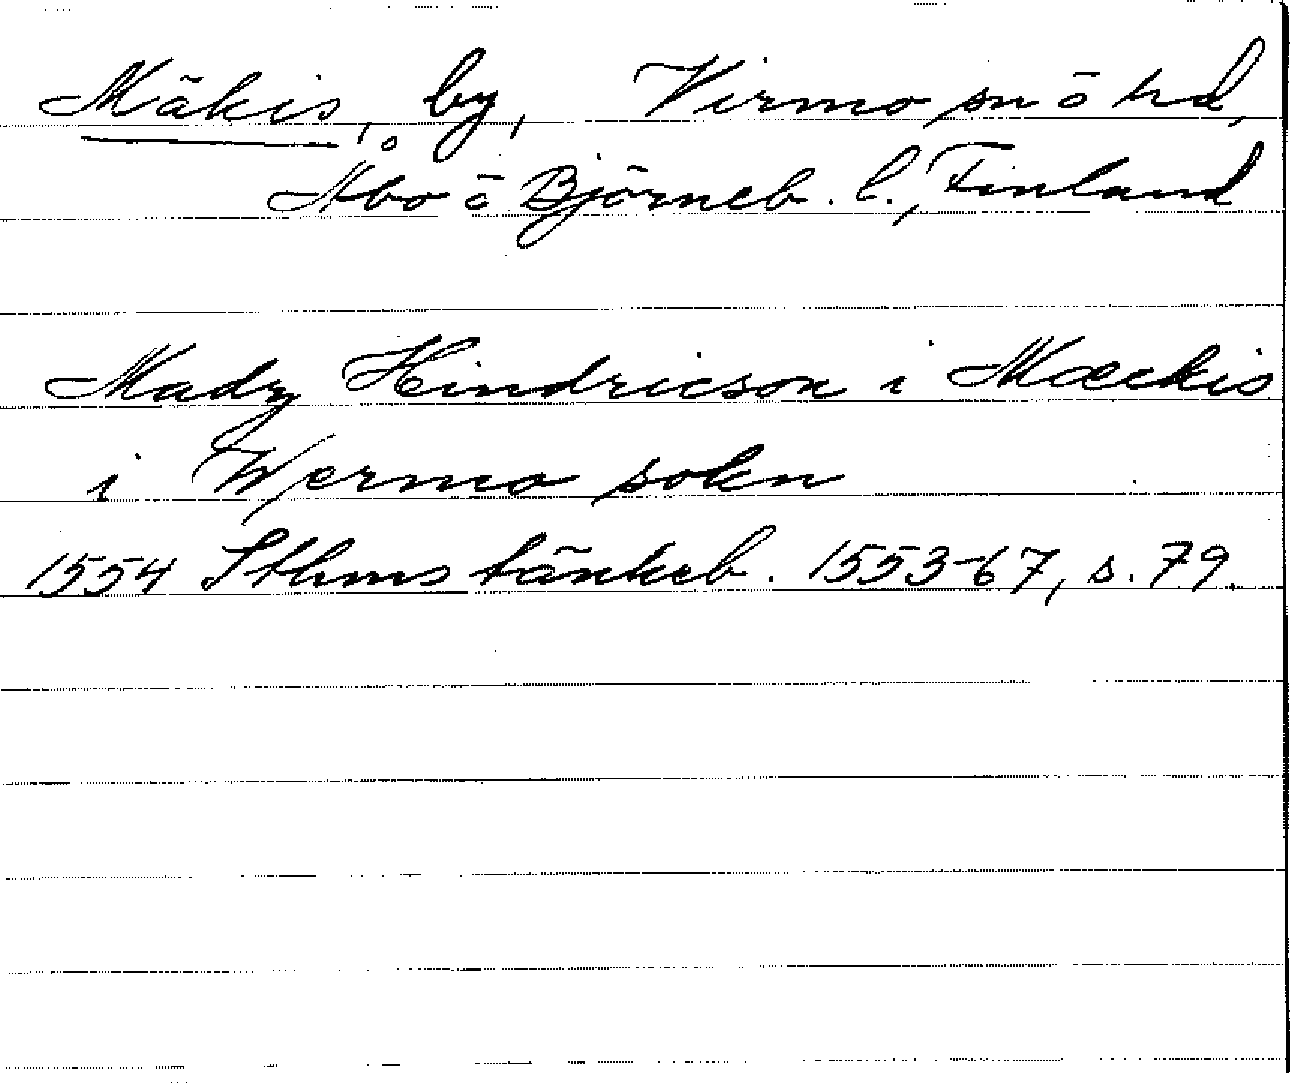 Mäkis, by, Virmo sn ō hd,
Åbo ō Björneb. l., Finland
Madz Hindricson i Mæckis
i Wermo sokn
1554 Sthms tänkeb. 1553-67, s. 79.